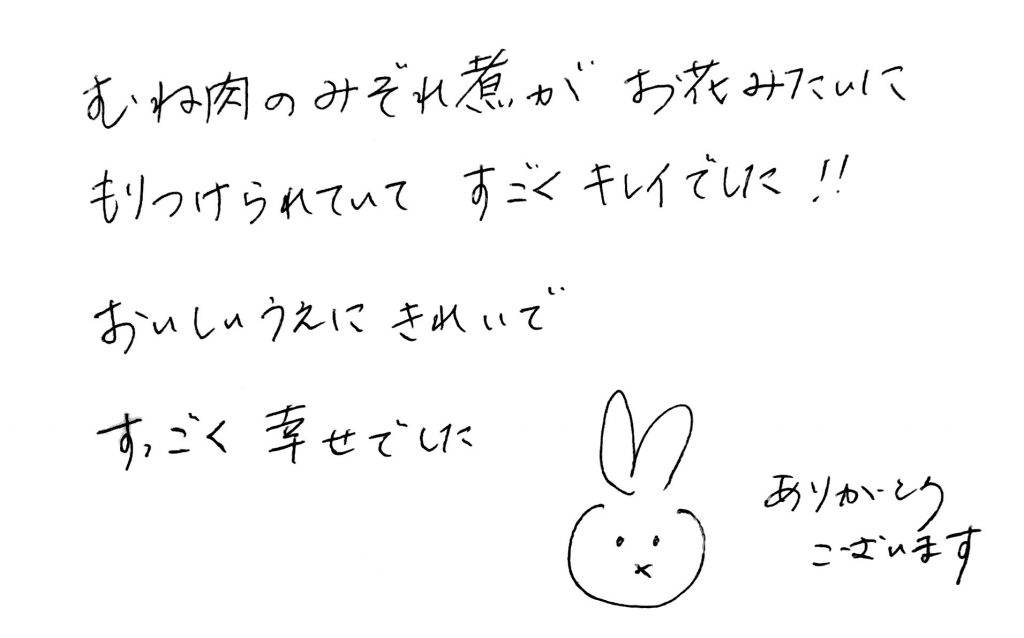 むね肉のみぞれ煮が お花みたいに
もりつけられていて すごく キレイでした!!
おいしいうえに きれいで
すっごく 幸せでした
ありがとう
ございます